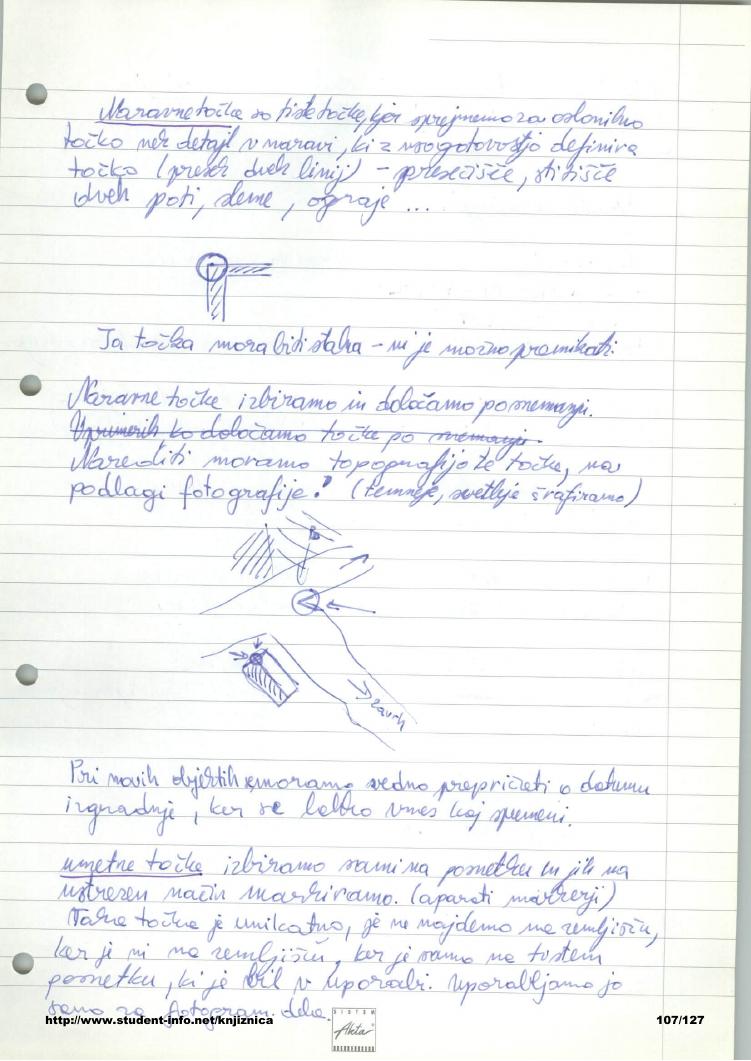 Naravne točke so tiste točke, kjer sprejmemo za oslonilno
točko nek detajl v naravi, ki z vso gotovostjo definira
točko (presek dveh linij) - presečišče, stičišče
dveh poti, sleme, ograje ...
Ta točka mora biti stalna - ni je možno premikati.
Naravne točke izbiramo in določamo po snemanju.
V primerih, ko določamo točke po snemanju.
Narediti moramo topografijo te točke, na
podlagi fotografije! (temneje, svetleje šrafiramo)
Pri novih objektih moramo vedno prepričati o datumu
izgradnje, ker se lahko vmes kaj spremeni.
umetne točke izbiramo sami na posnetku in jih na
ustrezen način markiramo. (aparati markerji)
Takšna točka je unikatna, je ne najdemo na zemljišču,
ker je ni na zemljišču, ker je samo na tistem
posnetku, ki je bil v uporabi. Uporabljamo jo
samo za fotogram. dela.
http://www.student-info.net/knjiznica
SISTEM
Akta
107/127